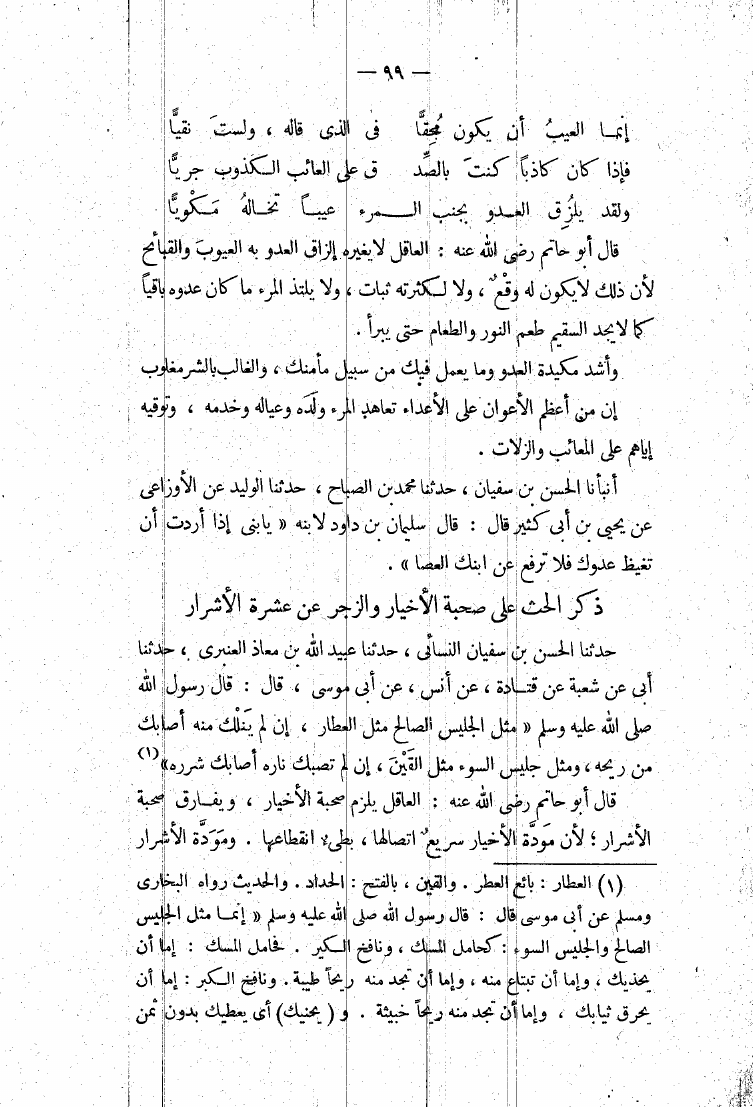 — ٩٩ —
إنمـا العيبُ أن يكون مُحِقًّا في الذى قاله ، ولستَ نقيًّا
فإذا كان كاذباً كنتَ بالصِّد ق على العائب الـكذوب جريًّا
ولقد يلزُق العـدو بجنب الـمرء عيبـاً تخـالهُ مَـكْويًّا
قال أبو حاتم رضى الله عنه : العاقل لايغيره إلزاق العدو به العيوبَ والقبائح
لأن ذلك لايكون له وقْعٌ ، ولا لـكثرته ثبات ، ولا يلتذ المرء ما كان عدوه باقياً
كما لايجد السقيم طعم النور والطعام حتى يبرأ .
وأشد مكيدة العدو وما يعمل فيك من سبيل مأمنك ، والغالب بالشر مغلوب
إن من أعظم الأعوان على الأعداء تعاهد المرء ولَده وعياله وخدمه ، وتوقيه
إياهم على المعائب والزلات .
أنبأنا الحسن بن سفيان ، حدثنا محمد بن الصباح ، حدثنا الوليد عن الأوزاعى
عن يحيى بن أبى كثير قال : قال سليمان بن داود لابنه « يابنى إذا أردت أن
تغيظ عدوك فلا ترفع عن ابنك العصا » .
ذكر الحث على صحبة الأخيار والزجر عن عشرة الأشرار
حدثنا الحسن بن سفيان النسائى ، حدثنا عبيد الله بن معاذ العنبرى ، حدثنا
أبى عن شعبة عن قتـادة ، عن أنس ، عن أبى موسى ، قال : قال رسول الله
صلى الله عليه وسلم « مثل الجليس الصالح مثل العطار ، إن لم يَنَلْك منه أصابك
من ريحه ، ومثل جليس السوء مثل القَيْنَ ، إن لم تصبك ناره أصابك شرره»(١)
قال أبو حاتم رضى الله عنه : العاقل يلزم صحبة الأخيار ، ويفـارق صحبة
الأشرار ؛ لأن مَودَّة الأخيار سريعٌ اتصالها ، بطىء انقطاعها . ومَوَدَّة الأشرار
(١) العطار : بائع العطر . والقين ، بالفتح : الحداد . والحديث رواه البخارى
ومسلم عن أبى موسى قال : قال رسول الله صلى الله عليه وسلم « إنمـا مثل الجليس
الصالح والجليس السوء : كحامل المسك ، ونافخ الـكير . فحامل المسك : إما أن
يحذيك ، وإما أن تبتاع منه ، وإما أن تجد منه ريحاً طيبة . ونافخ الكير : إما أن
يحرق ثيابك ، وإما أن تجد منه ريحاً خبيثة . و ( يحذيك ) أى يعطيك بدون ثمن